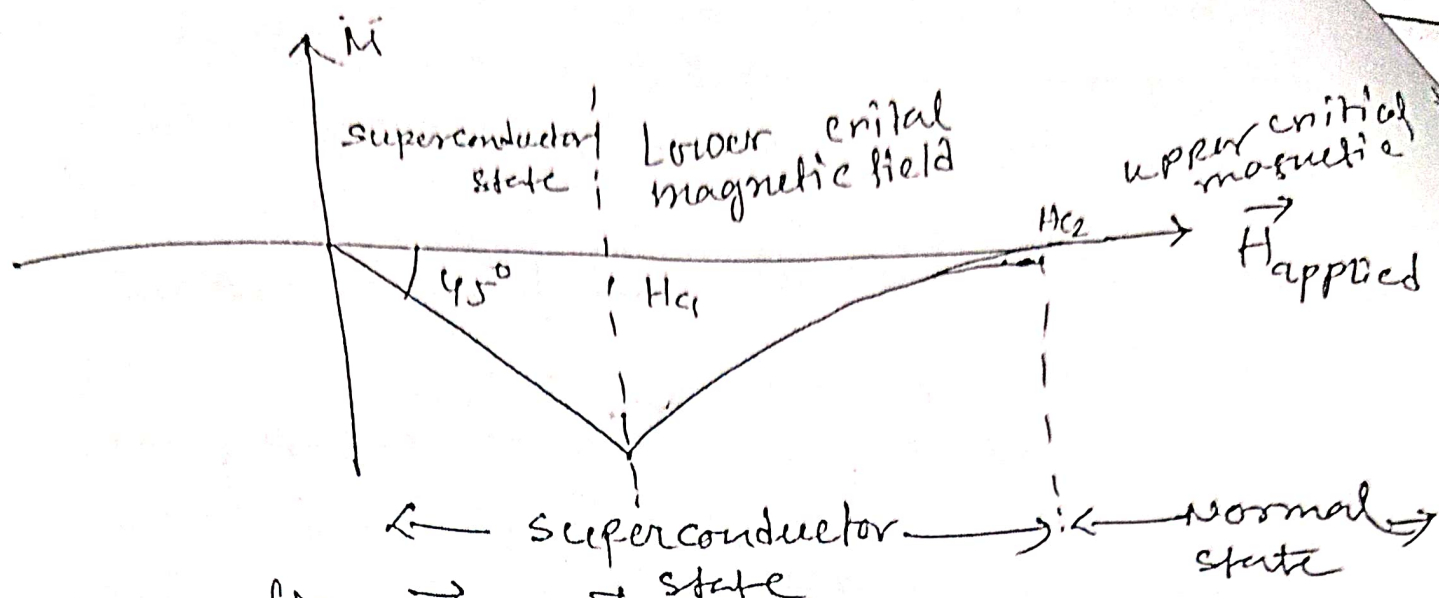 M
superconductor
state
Lower crital
magnetic field
upper critical
magnetic
Hc2
H applied
45°
Hc1
superconductor
state
Normal
state